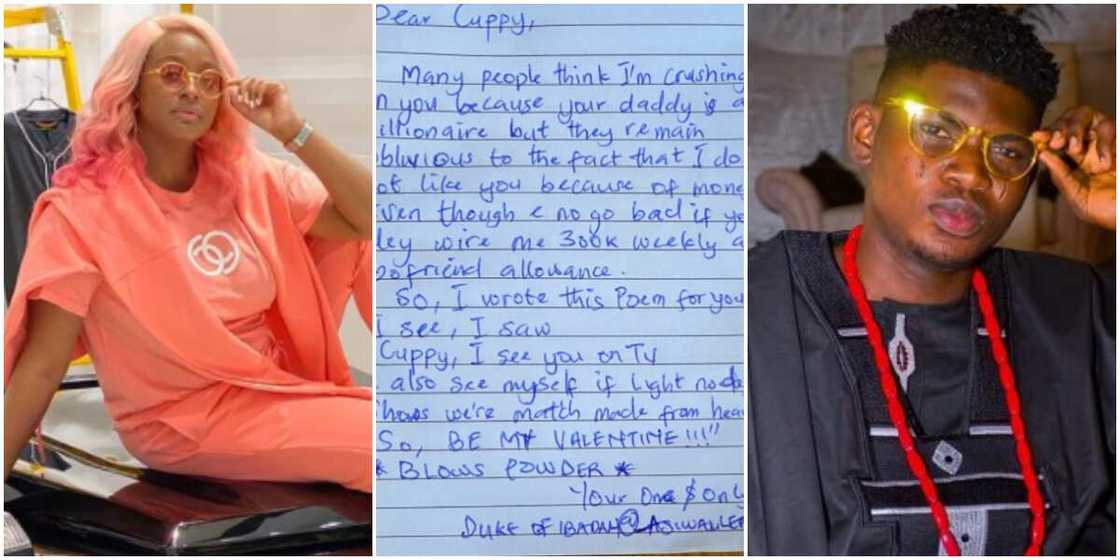 Dear Cuppy,
Many people think I'm crushing
n you because your daddy is a
illionaire but they remain
oblivious to the fact that I do
ot like you because of mone
ven though e no go bad if yo
ley wire me 300k weekly a
friend allowance.
So, I wrote this Poem for you
I see, I saw
Cuppy, I see you on TV
also see myself if light no de
hows we're match made from hea
So, BE MY VALENTINE!!!"
* BLOWS POWDER *
Your One & Only
DUKE OF IBADAN